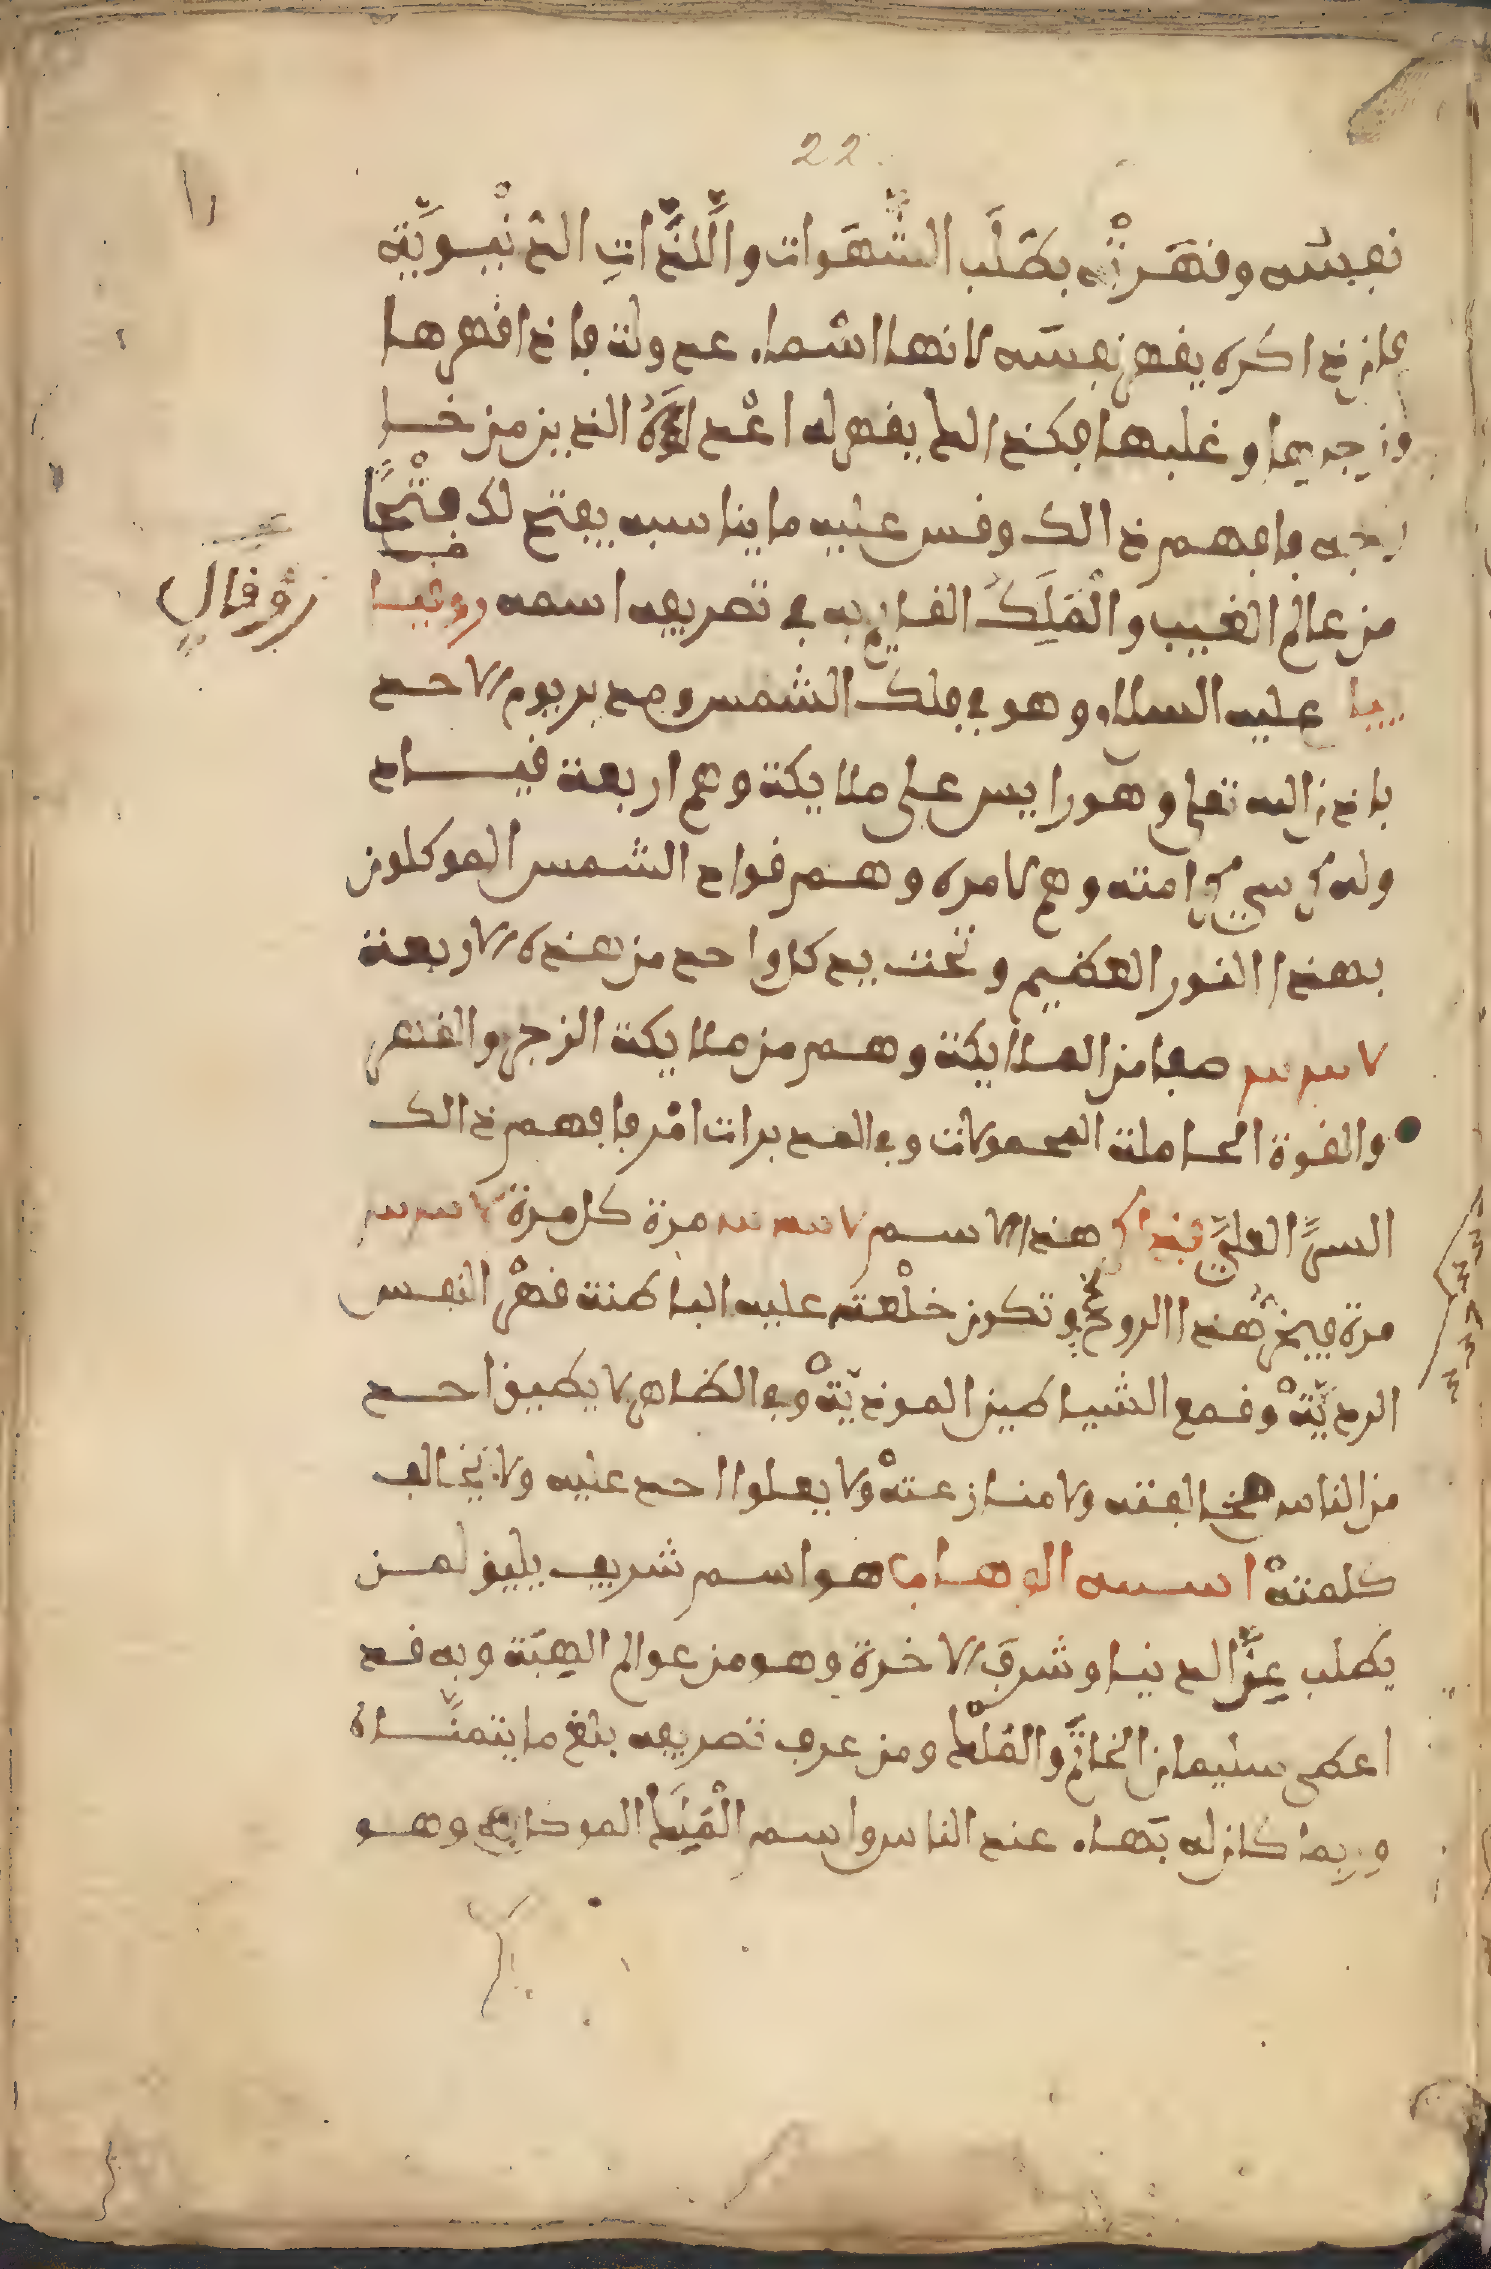 22
نفسه وقهرته بطلب الشهوات واللذات الدنيوية
فان ذاكره يقهر نفسه لانها اشد عدولة فاذا قهرها
وزجرها وغلبها فكذلك يقهر له اعداؤه الذين من خا
رجه فافهم ذالك وقس عليه ما يناسبه يفتح لك فتحا
من عالم الغيب والملك القايم به في تصريفه اسمه روقيا
ييا عليه السلام وهو في فلك الشمس ومدبر يوم الاحد
باذن الله تعلى وهو رايس على ملايكة وهم اربعة قياد
وله كرسي كرامته وهم لامره وهم قواد الشمس الموكلون
بهذا النور العظيم وتحت يد كل واحد من هذه الاربعة
صفا من الملايكة وهم من ملايكة الزجر والقهر
والقوة الحاملة المحمولات وفي المدبرات امر فافهم ذالك
السر العلي فذاكر هذا الاسم مرة كل مرة
مرة فيحضر هذا الروح وتكون خلعته عليه الباطنة قهر النفس
الردية وقمع الشياطين الموذية وفي الظاهر لا يطيق احد
من الناس مخالفته ولا منازعته ولا يعلوا احد عليه ولا يخالف
كلمته اسمه الوهاب هو اسم شريف يليق لمن
يطلب عز الدنيا وشرف الاخرة وهو من عوالم الهبة وبه قد
اعطى سليمان الخاتم والملك ومن عرف تصريفه بلغ ما يتمناه
وربما كان له بهاء عند الناس واسم الملك الموكل به وهو
زوقيال